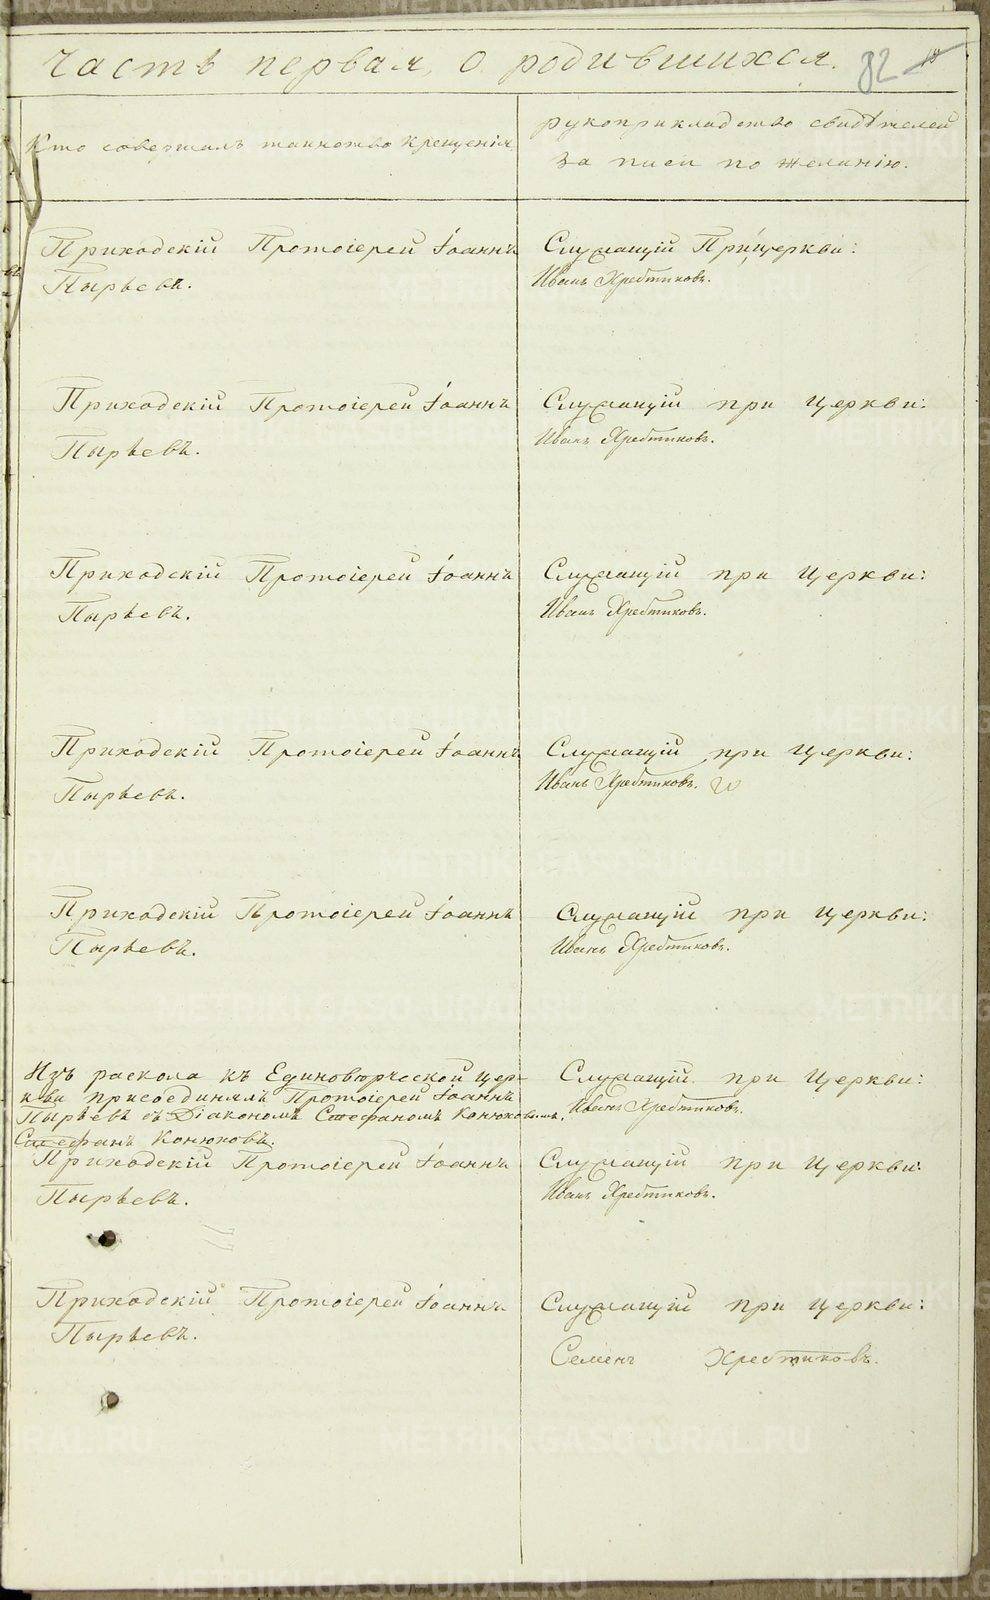 часть первая, о родившихся. 82
Кто совершалъ таинство крещенія
рукоприкладство свидѣтелей
за писи по желанію.
Приходскій Протоіерей Іоаннъ
Пырьевъ.
Служащій При церкви:
Иванъ Хребтиковъ.
Приходскій Протоіерей Іоаннъ
Пырьевъ.
Служащій при Церкви:
Иванъ Хребтиковъ.
Приходскій Протоіерей Іоаннъ
Пырьевъ.
Служащій при Церкви:
Иванъ Хребтиковъ.
Приходскій Протоіерей Іоаннъ
Пырьевъ.
Служащій при Церкви:
Иванъ Хребтиковъ.
Приходскій Протоіерей Іоаннъ
Пырьевъ.
Служащій при Церкви:
Иванъ Хребтиковъ.
Изъ раскола къ Единоверческой цер-
кви присоединялъ Протоіерей Іоаннъ
Пырьевъ съ Діакономъ Стефаномъ Конюховымъ.
Стефанъ Конюховъ.
Служащій при Церкви:
Иванъ Хребтиковъ.
Приходскій Протоіерей Іоаннъ
Пырьевъ.
Служащій при Церкви:
Иванъ Хребтиковъ.
Приходскій Протоіерей Іоаннъ
Пырьевъ.
Служащій при Церкви:
Семенъ Хребтиковъ.
METRIKI.GASO-URAL.RU